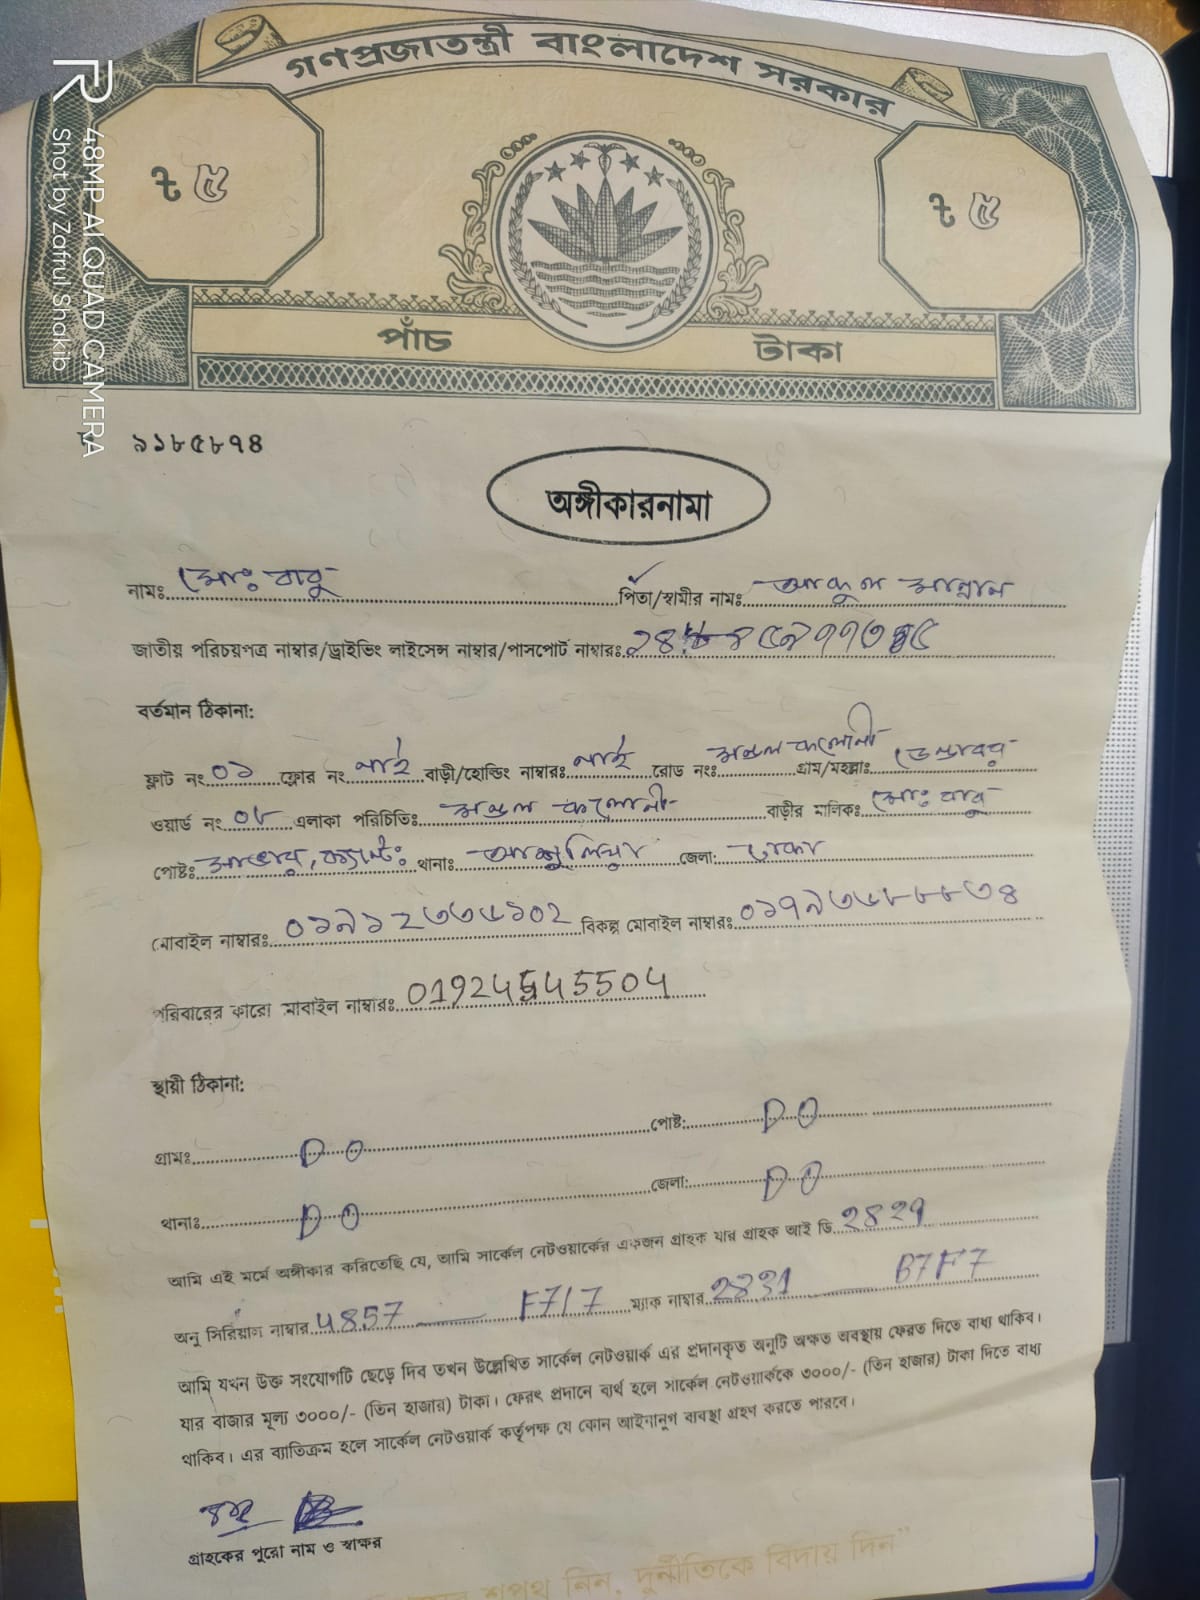 গণপ্রজাতন্ত্রী বাংলাদেশ সরকার
৳ ৫
৳ ৫
পাঁচ টাকা
48MP AI QUAD CAMERA
Shot by Zafrul Shakib
৯১৮৫৮৭৪
অঙ্গীকারনামা
নামঃ মোঃ বাবু পিতা/স্বামীর নামঃ আব্দুল মান্নান
জাতীয় পরিচয়পত্র নাম্বার/ড্রাইভিং লাইসেন্স নাম্বার/পাসপোর্ট নাম্বারঃ
বর্তমান ঠিকানা:
ফ্লাট নং ০১ ফ্লোর নং নাই বাড়ী/হোল্ডিং নাম্বারঃ নাই রোড নংঃ মন্ডল কলোনী গ্রাম/মহল্লাঃ ডেন্ডাবর
ওয়ার্ড নং ০৮ এলাকা পরিচিতিঃ মন্ডল কলোনী বাড়ীর মালিকঃ মোঃ বাবু
পোষ্টঃ সাভার, ক্যান্টঃ থানাঃ আশুলিয়া জেলা: ঢাকা
মোবাইল নাম্বারঃ ০১৯১২৩৩৬১০২ বিকল্প মোবাইল নাম্বারঃ ০১৭৯৩৬৮৮৮৩৪
পরিবারের কারো মোবাইল নাম্বারঃ 01924545504
স্থায়ী ঠিকানা:
গ্রামঃ DO পোষ্ট: DO
থানাঃ DO জেলা: DO
আমি এই মর্মে অঙ্গীকার করিতেছি যে, আমি সার্কেল নেটওয়ার্কের একজন গ্রাহক যার গ্রাহক আই ডি 2829
অনু সিরিয়াল নাম্বার 4857 — F717 ম্যাক নাম্বার 2831 — B7F7
আমি যখন উক্ত সংযোগটি ছেড়ে দিব তখন উল্লেখিত সার্কেল নেটওয়ার্ক এর প্রদানকৃত অনুটি অক্ষত অবস্থায় ফেরত দিতে বাধ্য থাকিব।
যার বাজার মূল্য ৩০০০/- (তিন হাজার) টাকা। ফেরৎ প্রদানে ব্যর্থ হলে সার্কেল নেটওয়ার্ককে ৩০০০/- (তিন হাজার) টাকা দিতে বাধ্য
থাকিব। এর ব্যাতিক্রম হলে সার্কেল নেটওয়ার্ক কর্তৃপক্ষ যে কোন আইনানুগ ব্যবস্থা গ্রহণ করতে পারবে।
গ্রাহকের পুরো নাম ও স্বাক্ষর
শপথ নিন, দুর্নীতিকে বিদায় দিন"